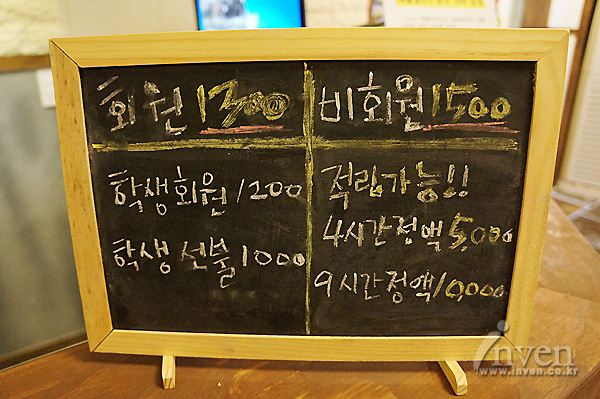 회원 1300
비회원 1500
학생회원 1200
학생 선불 1000
적립가능!!
4시간정액 5,000
9시간정액 10,000
inven
www.inven.co.kr